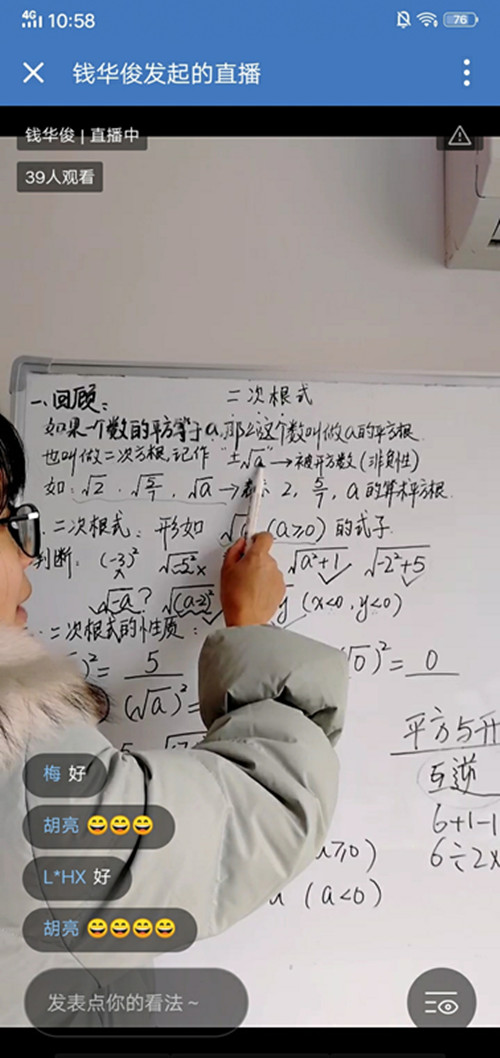 4G 10:58 76
钱华俊发起的直播
钱华俊 | 直播中
39人观看
二次根式
一、回顾:
如果一个数的平方等于a,那么这个数叫做a的平方根
也叫做二次方根,记作"±√a"→被开方数(非负性)
如:√2 . √5/7 , √a → 2, 5/7, a的算术平方根.
二次根式: 形如 (a≥0)的式子
判断: (-3)² √-5² × √a²+1 √-2²+5
√-a? √(a-2)² y (x<0,y<0)
二次根式的性质:
)²= 5 (√0)²= 0
(√a)²=
平方与开
互逆
6+1-1
6÷2×
a≥0)
(a<0)
梅 好
胡亮 😄😄😄
L*HX 好
胡亮 😄😄😄😄
发表点你的看法~